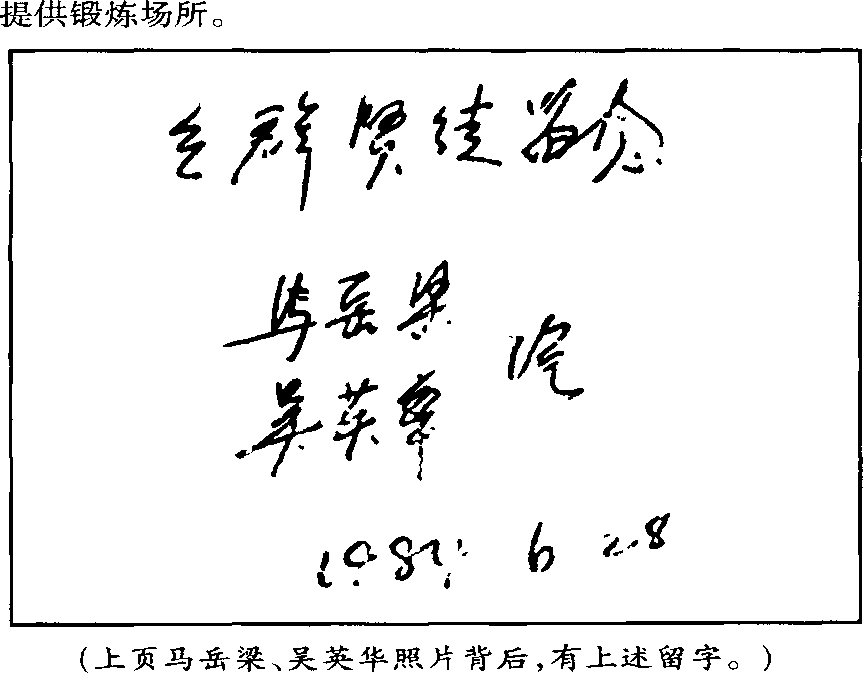 提供锻炼场所。
群贤徒留念
马岳梁
吴英华
1987. 6 28
(上页马岳梁、吴英华照片背后,有上述留字。)